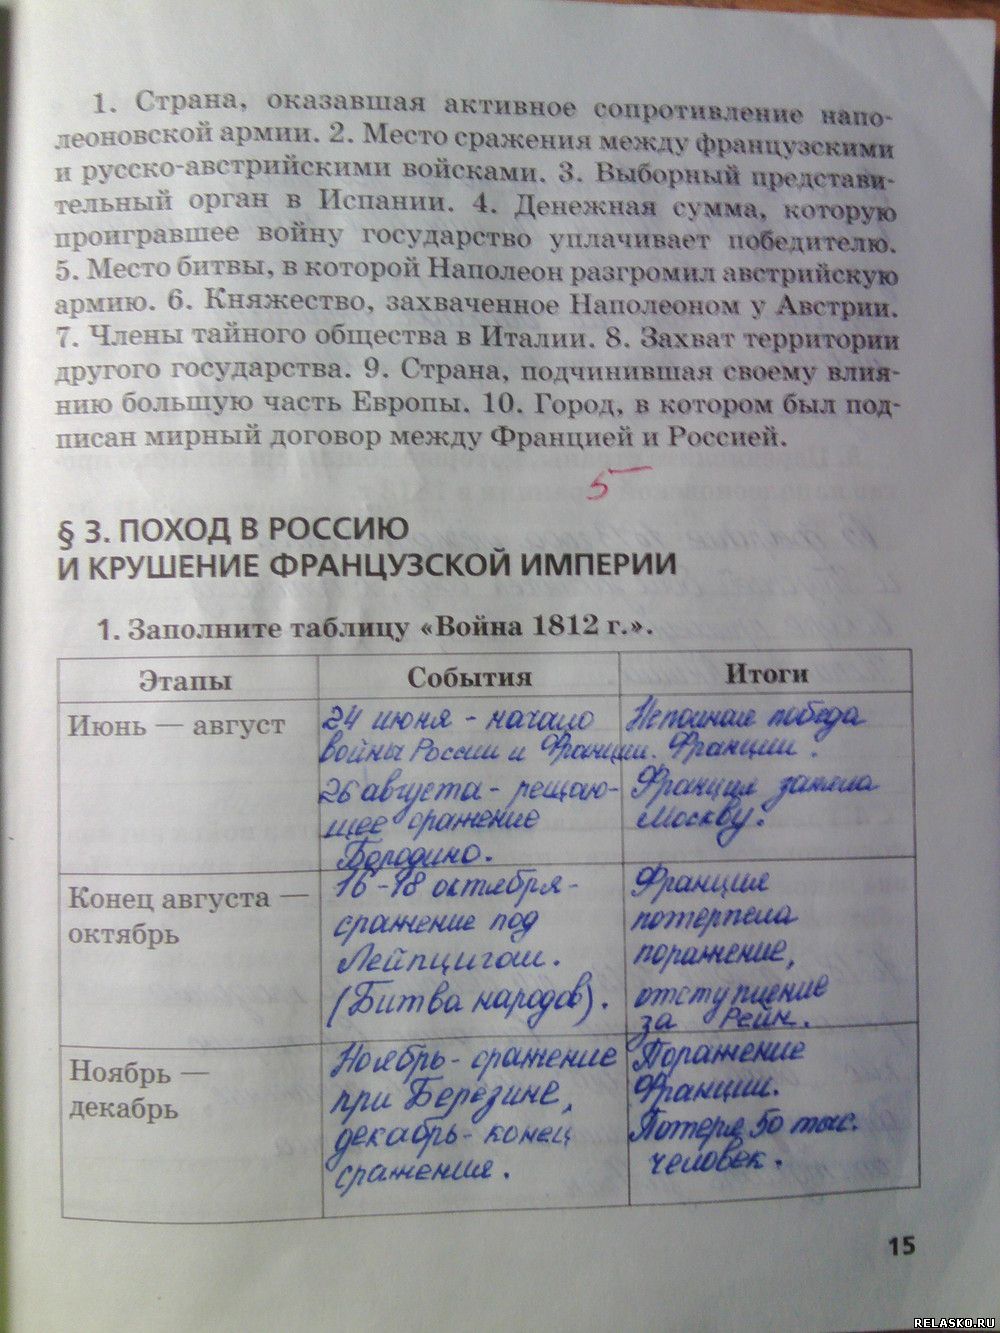 1. Страна, оказавшая активное сопротивление напо-
леоновской армии. 2. Место сражения между французскими
и русско-австрийскими войсками. 3. Выборный представи-
тельный орган в Испании. 4. Денежная сумма, которую
проигравшее войну государство уплачивает победителю.
5. Место битвы, в которой Наполеон разгромил австрийскую
армию. 6. Княжество, захваченное Наполеоном у Австрии.
7. Члены тайного общества в Италии. 8. Захват территории
другого государства. 9. Страна, подчинившая своему влия-
нию большую часть Европы. 10. Город, в котором был под-
писан мирный договор между Францией и Россией.
5
§ 3. ПОХОД В РОССИЮ
И КРУШЕНИЕ ФРАНЦУЗСКОЙ ИМПЕРИИ
1. Заполните таблицу «Война 1812 г.».
Этапы
События
Итоги
Июнь — август
24 июня - начало
войны России и Франции.
26 августа - решаю-
щее сражение
Бородино.
Неполная победа
Франции.
Франция заняла
Москву.
Конец августа —
октябрь
16-18 октября-
сражение под
Лейпцигом.
(Битва народов).
Франция
потерпела
поражение,
отступление
за Рейн.
Ноябрь —
декабрь
Ноябрь - сражение
при Березине,
декабрь - конец
сражения.
Поражение
Франции.
Потеря 50 тыс.
человек.
15
RELASKO.RU